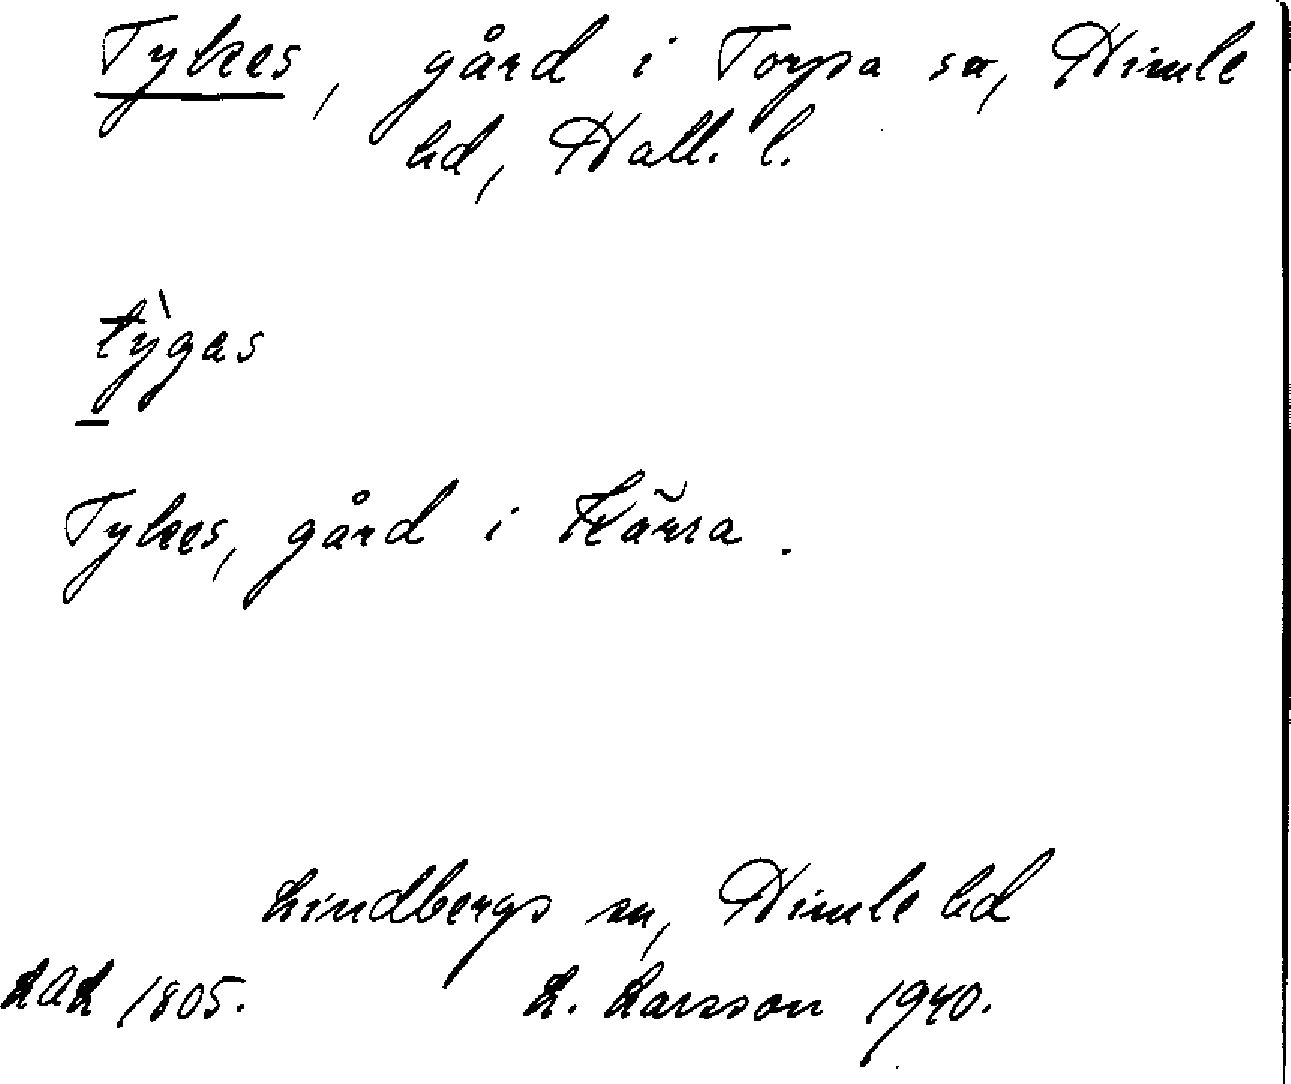 Tykes, gård i Torpa sn, Himle
hd, Hall. l.
tỳgas
Tykes, gård i Kärra.
Lindbergs sn, Himle hd
LAL 1805. L. Larsson 1940.